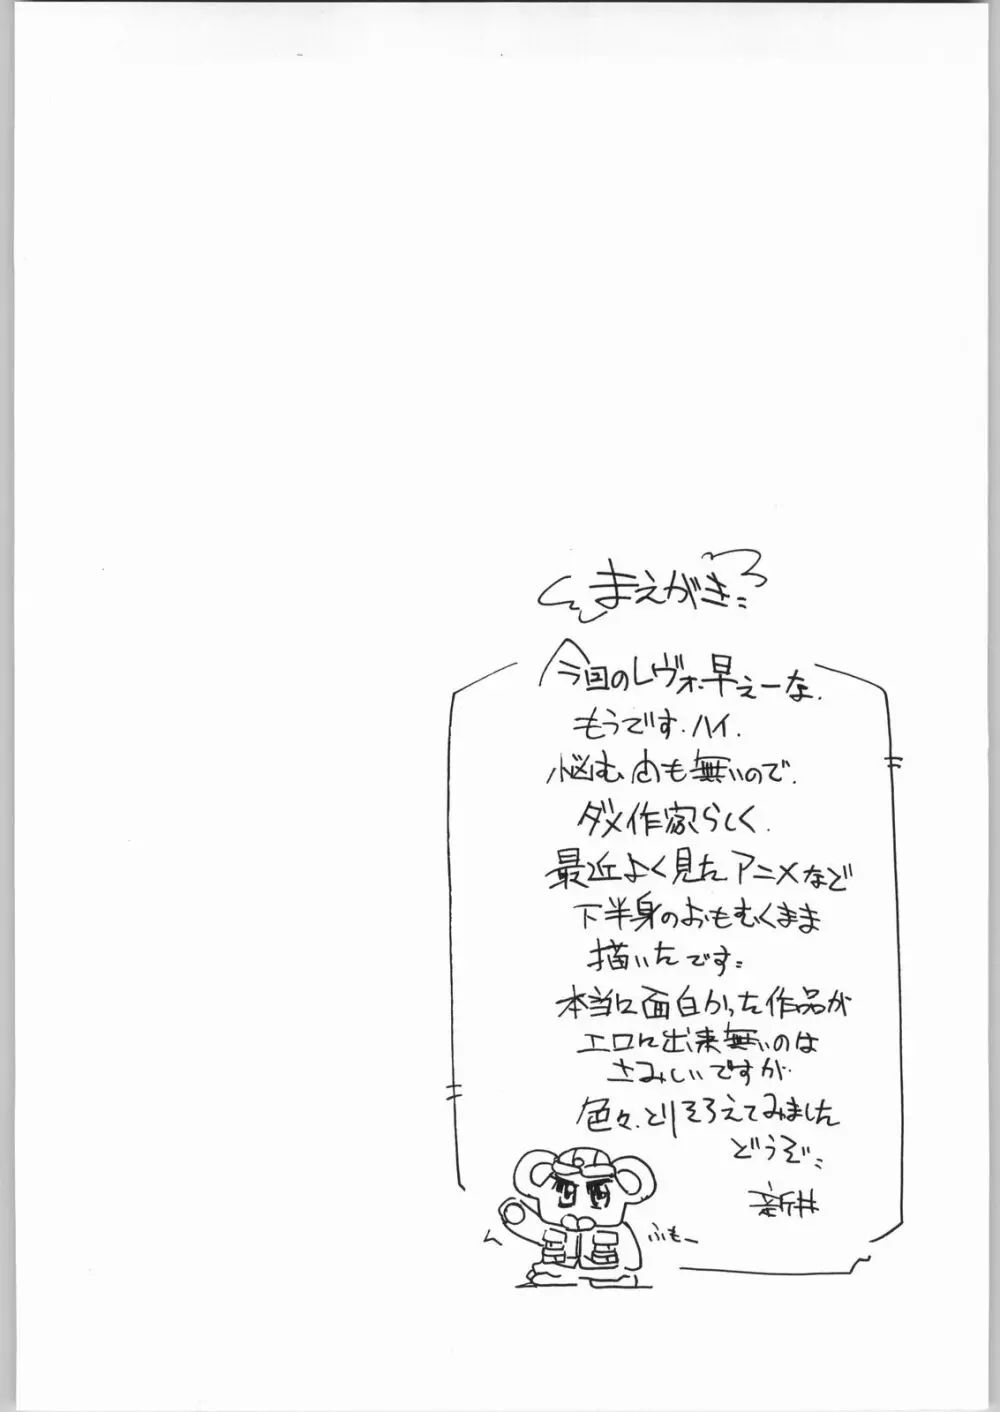 まえがき
今回のレヴォ、早えーな、
もうです、ハイ、
悩む間も無いので、
ダメ作家らしく、
最近よく見たアニメなど
下半身のおもむくまま
描いたです
本当に面白かった作品が
エロに出来無いのは
さみしいですが
色々、とりそろえてみました
どうぞ
新井
ふもー